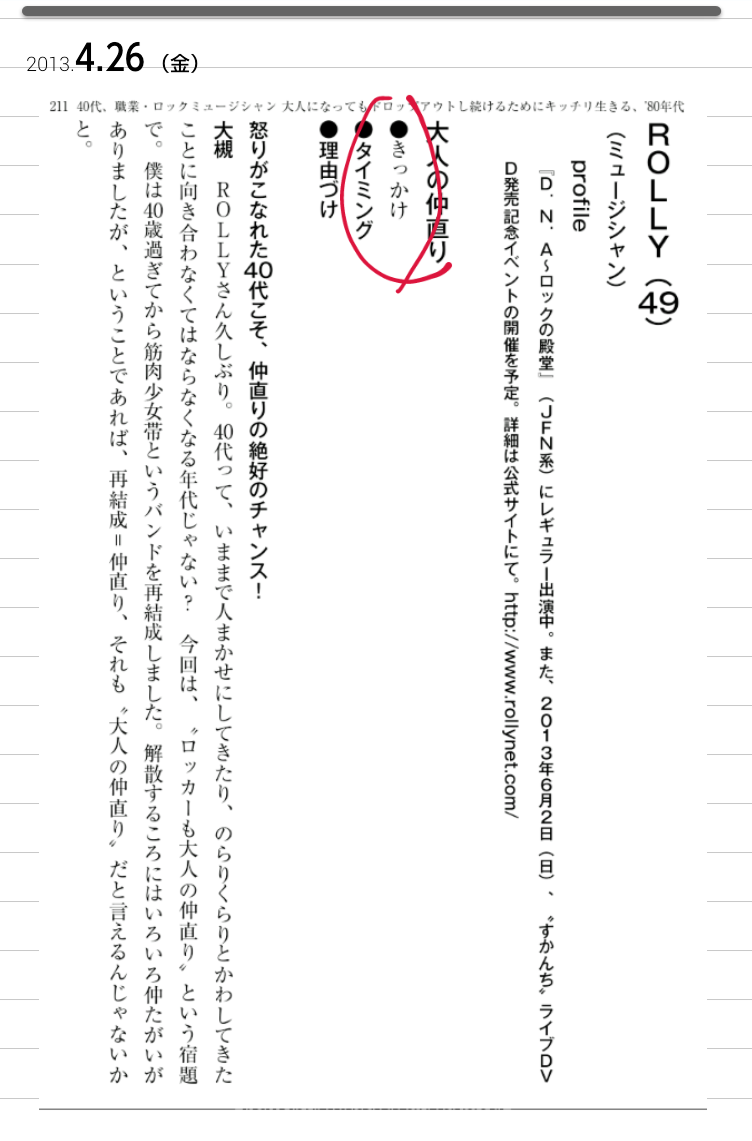 2013.4.26（金）
211 40代、職業・ロックミュージシャン 大人になってもドロップアウトし続けるためにキッチリ生きる、'80年代
ROLLY（49）
（ミュージシャン）
profile
『D．N．A～ロックの殿堂』（JFN系）にレギュラー出演中。また、2013年6月2日（日）、〝すかんち〟ライブDV
D発売記念イベントの開催を予定。詳細は公式サイトにて。http://www.rollynet.com/
大人の仲直り
●きっかけ
●タイミング
●理由づけ
怒りがこなれた40代こそ、仲直りの絶好のチャンス！
大槻　ROLLYさん久しぶり。40代って、いままで人まかせにしてきたり、のらりくらりとかわしてきた
ことに向き合わなくてはならなくなる年代じゃない？　今回は、〝ロッカーも大人の仲直り〟という宿題
で。僕は40歳過ぎてから筋肉少女帯というバンドを再結成しました。解散するころにはいろいろ仲たがいが
ありましたが、ということであれば、再結成＝仲直り、それも〝大人の仲直り〟だと言えるんじゃないか
と。